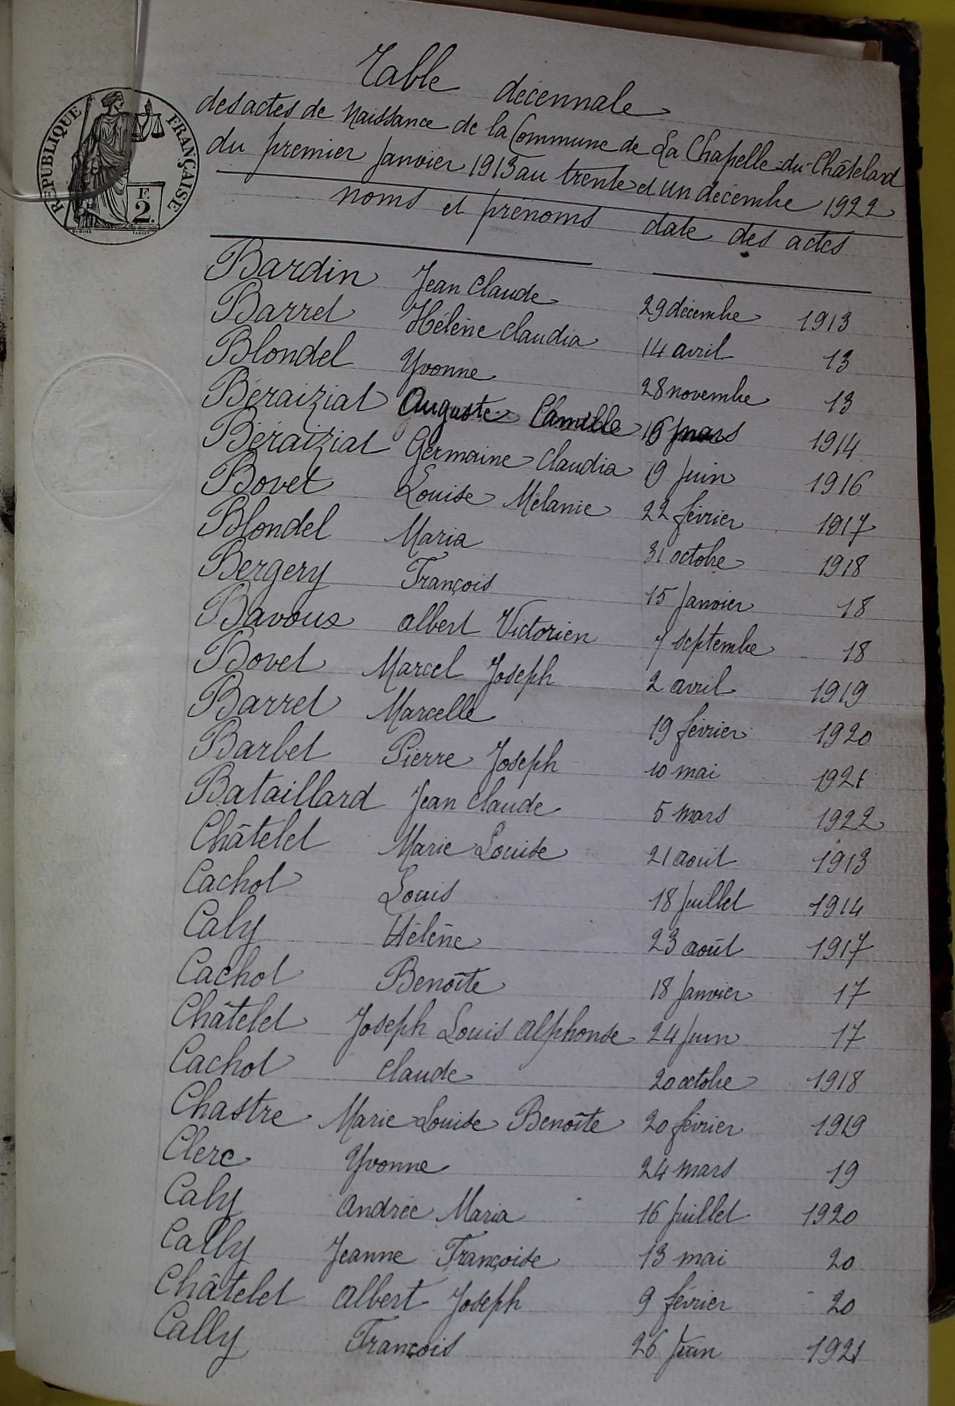 Table décennale
des actes de Naissance de la Commune de La Chapelle-du-Châtelard
du premier Janvier 1913 au trente et un décembre 1922
RÉPUBLIQUE FRANÇAISE
F.
2.
noms et prénoms date des actes
Bardin Jean Claude 29 décembre 1913
Barret Hélène Claudia 14 avril 13
Blondel Yvonne 28 novembre 13
Béraiziat Auguste Camille 16 mars 1914
Béraiziat Germaine Claudia 9 Juin 1916
Bovet Louise Mélanie 22 février 1917
Blondel Maria 31 octobre 1918
Bergery François 15 Janvier 18
Bavoux albert Victorien 7 septembre 18
Bovet Marcel Joseph 2 avril 1919
Barret Marcelle 19 février 1920
Barbet Pierre Joseph 10 mai 1921
Bataillard Jean Claude 5 mars 1922
Châtelet Marie Louise 21 août 1913
Cachot Louis 18 Juillet 1914
Caly Hélène 23 août 1917
Cachot Benoîte 18 Janvier 17
Châtelet Joseph Louis alphonse 24 Juin 17
Cachot Claude 20 octobre 1918
Chastre Marie Louise Benoîte 20 février 1919
Clerc Yvonne 24 mars 19
Caly Andrée Maria 16 Juillet 1920
Cally Jeanne Françoise 13 mai 20
Châtelet Albert Joseph 9 février 20
Cally François 26 Juin 1921